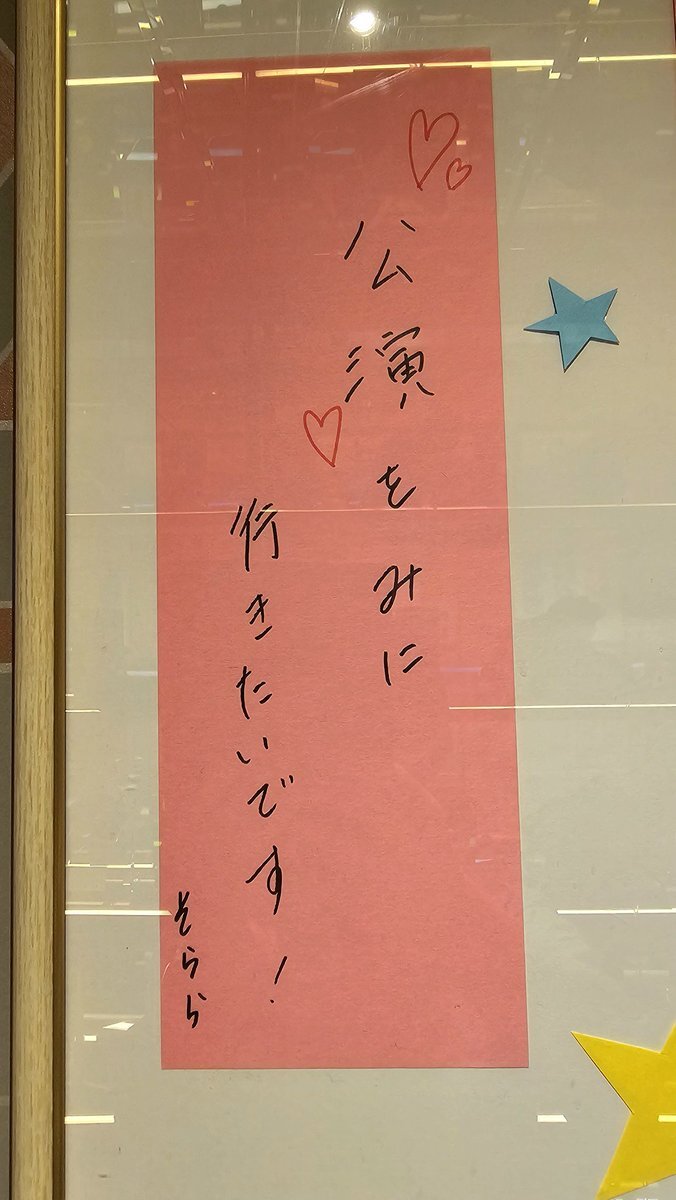 公演をみに
行きたいです！
そらら